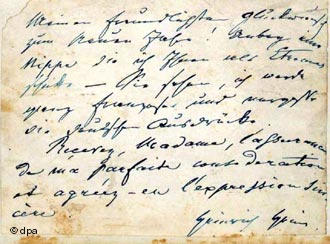 Meinen freundlichsten Glückwunsch
zum neuen Jahre! Anbey eine
Nippe die ich Ihnen als Etrennes
schicke — Sie sehen, ich werde
ganz Franzose und vergesse
die deutschen Ausdrücke.
Recevez, Madame, l'assurance
de ma parfaite consideration
et agréez-en l'expression sin-
cère
Heinrich Heine
© dpa